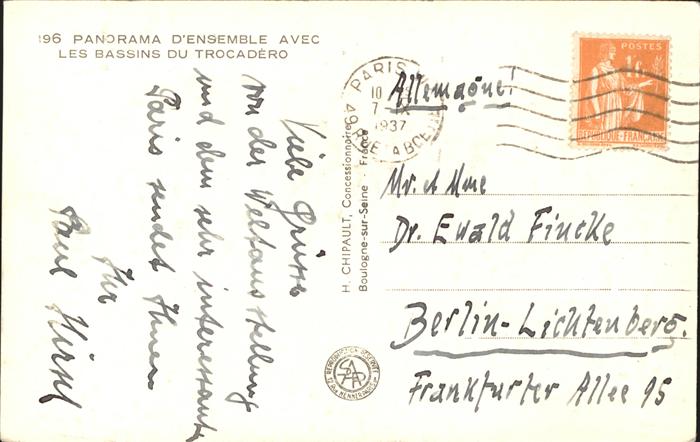 196 PANORAMA D'ENSEMBLE AVEC
LES BASSINS DU TROCADÉRO
Viele Grüsse
von der Weltausstellung
und dem sehr interessanten
Paris sendet Ihnen
Ihr
Paul Hirsch
H. CHIPAULT, Concessionnaire
Boulogne-sur-Seine - France
PARIS
10
7
1937
49 R. LA BOETIE
POSTES
1F
REPUBLIQUE FRANÇAISE
Allemagne!
Mr. et Mme
Dr. Ewald Fincke
Berlin-Lichtenberg.
Frankfurter Allee 95